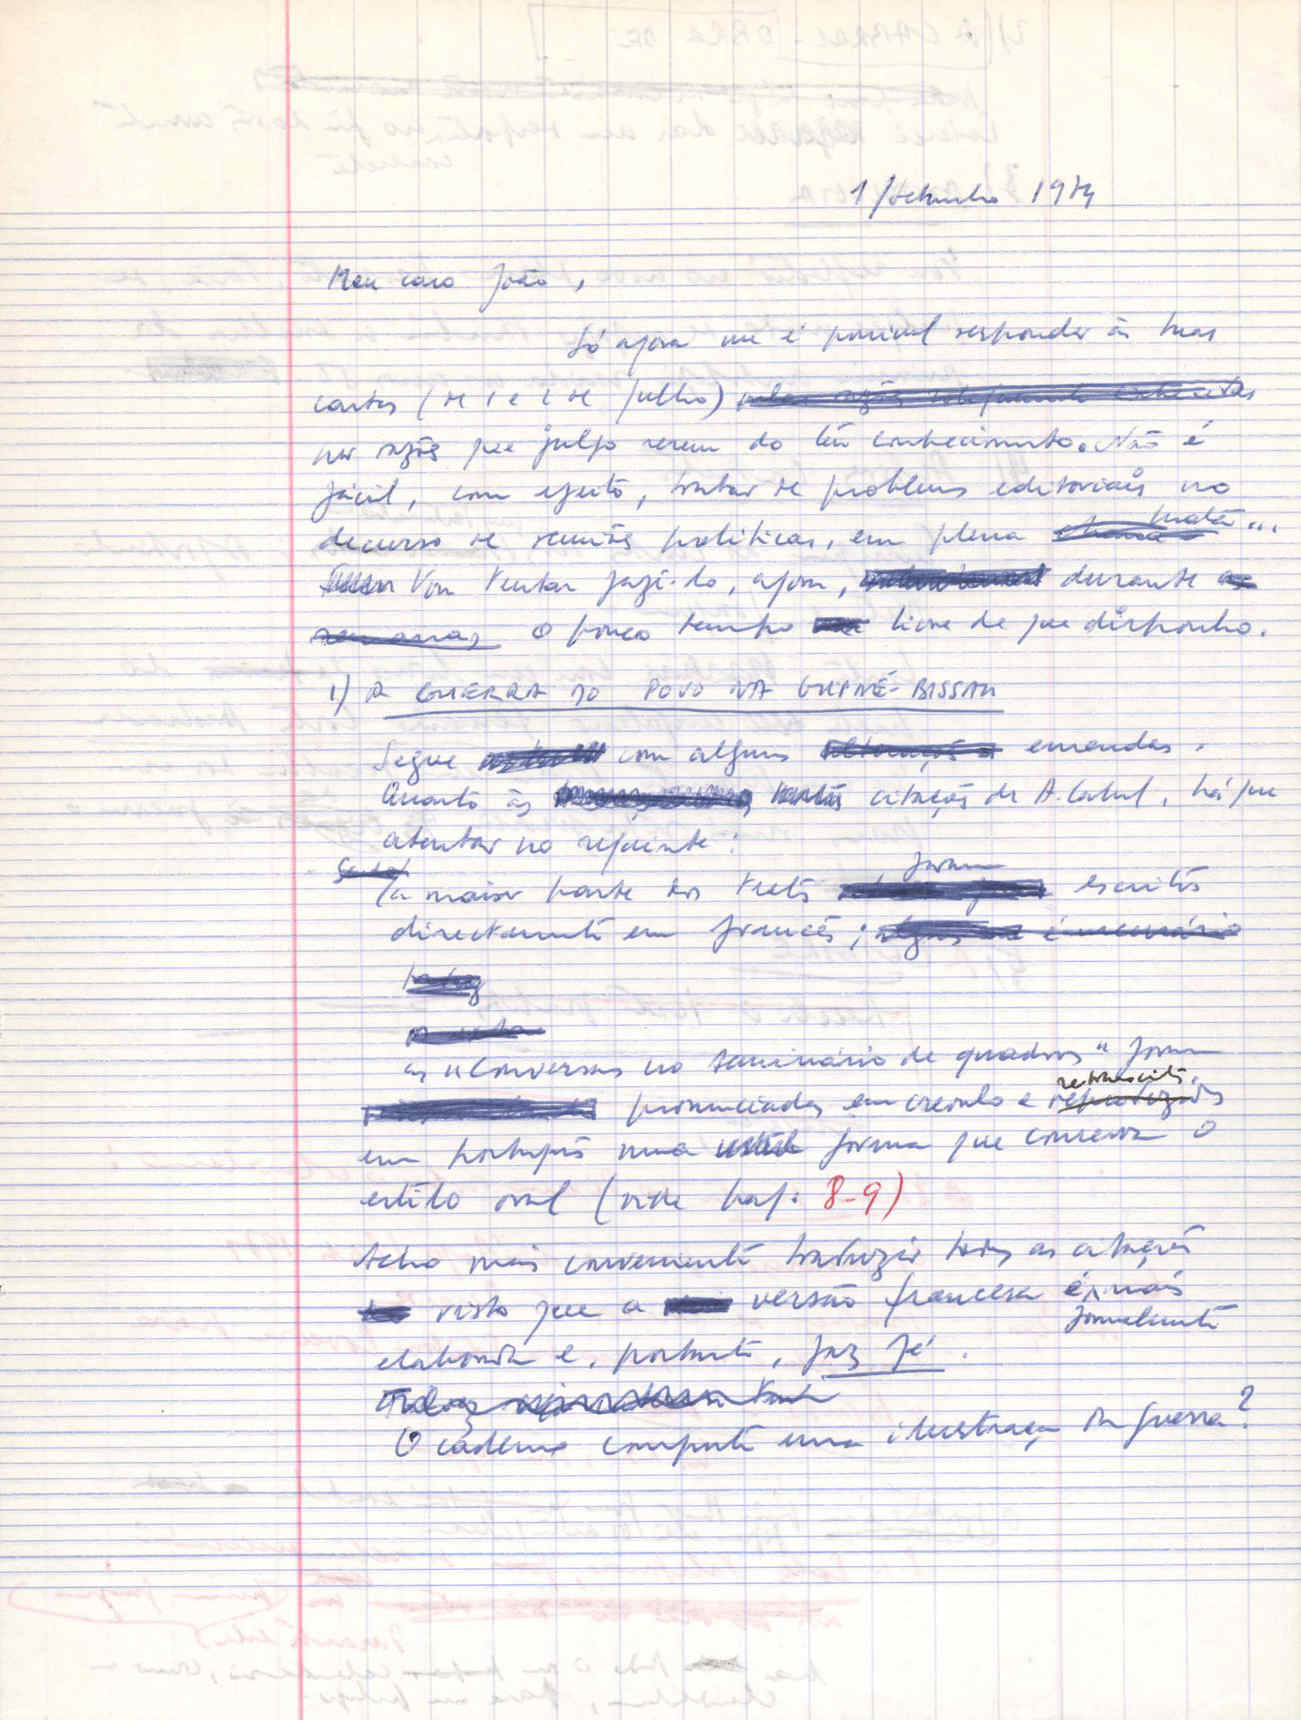 1/Setembro 1974
Meu caro João,
Só agora me é possível responder às tuas
cartas (de 1 e 2 de Julho)
por razões que julgo serem do teu conhecimento. Não é
fácil, com efeito, tratar de problemas editoriais no
decurso de reuniões políticas, em plena mata...
Vou tentar fazê-lo, agora, durante as
semanas o pouco tempo livre de que disponho.
1) A GUERRA DO POVO NA GUINÉ-BISSAU
Segue com algumas emendas.
Quanto às citações de A. Cabral, há que
atentar no seguinte:
a maior parte dos textos foram escritos
directamente em francês; é necessário
as "Conversas no seminário de quadros" foram
pronunciadas em crioulo e retranscritas
em português numa forma que conserva o
estilo oral (vide pag. 8-9)
Acho mais conveniente traduzir todas as citações
visto que a versão francesa é mais
formalmente
elaborada e, portanto, faz fé.
O caderno comporta uma ilustração da guerra?